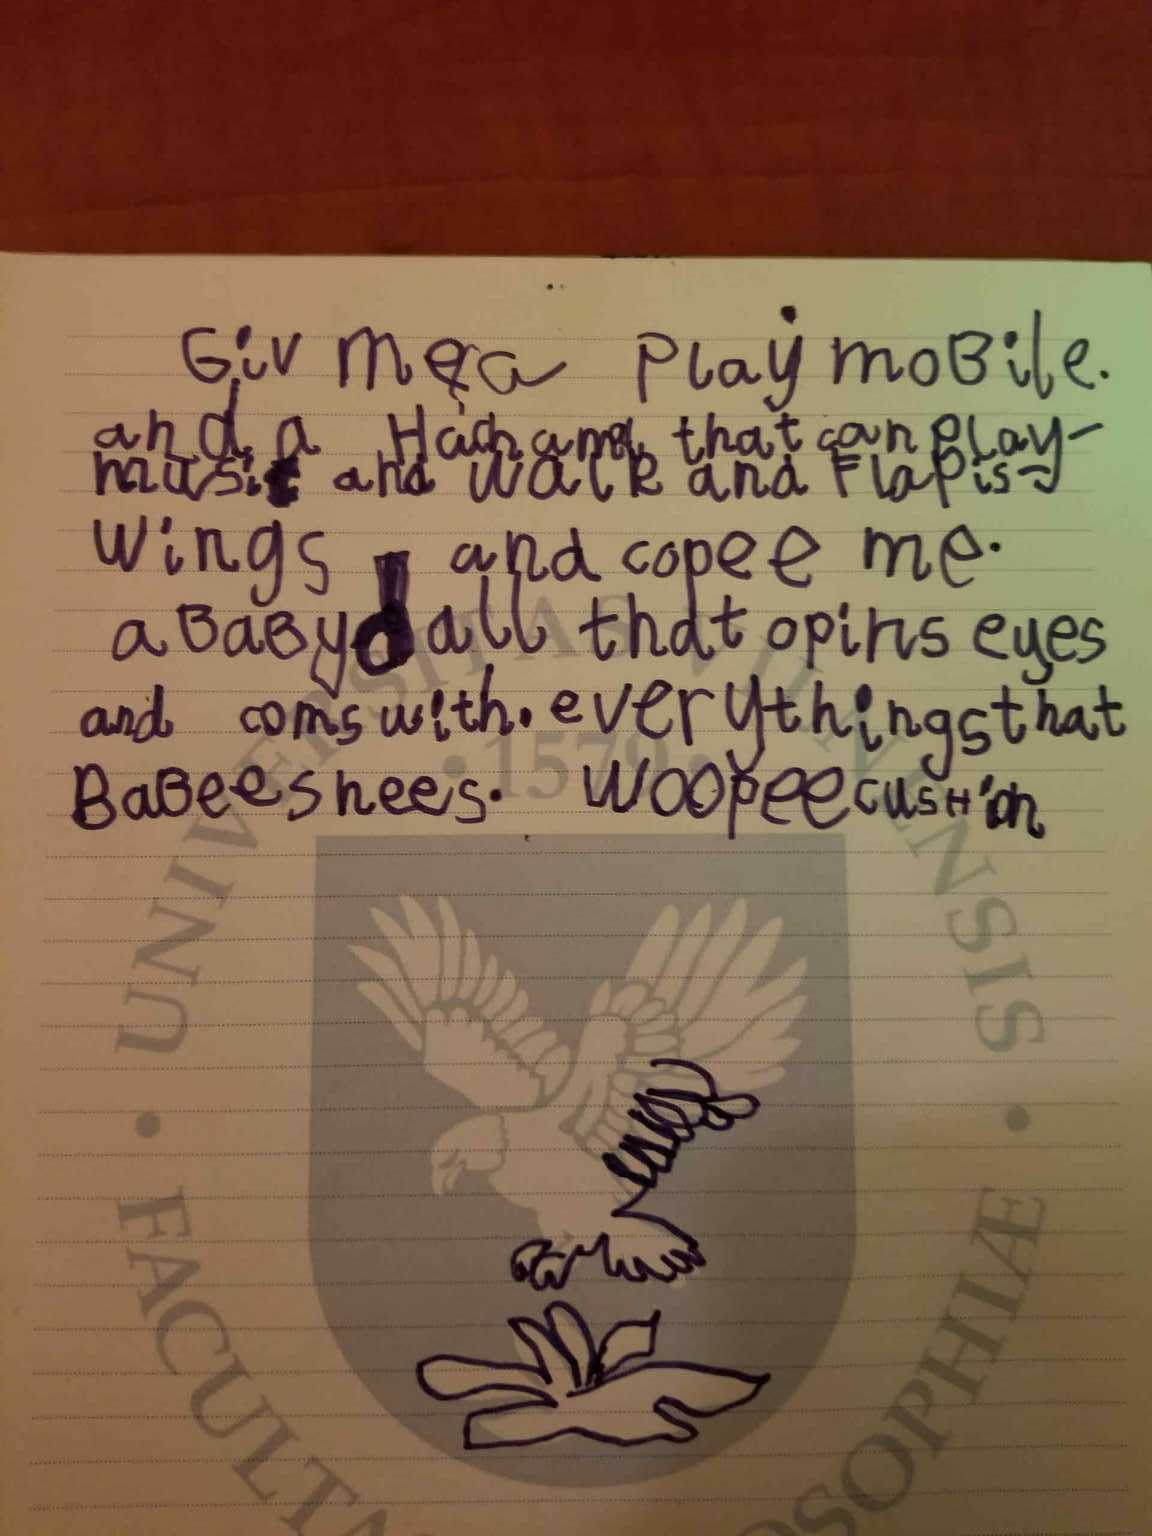 Giv me a Playmobile.
and a Hachamel that can play-
music and walk and Flap is-
wings and copee me.
a BaBy dall that opins eyes
and coms with. everythings that
BaBee s nees. Woopee cushion
UNIVERSITAS VILNENSIS
• 1579 •
• FACULTA OSOPHIÆ •